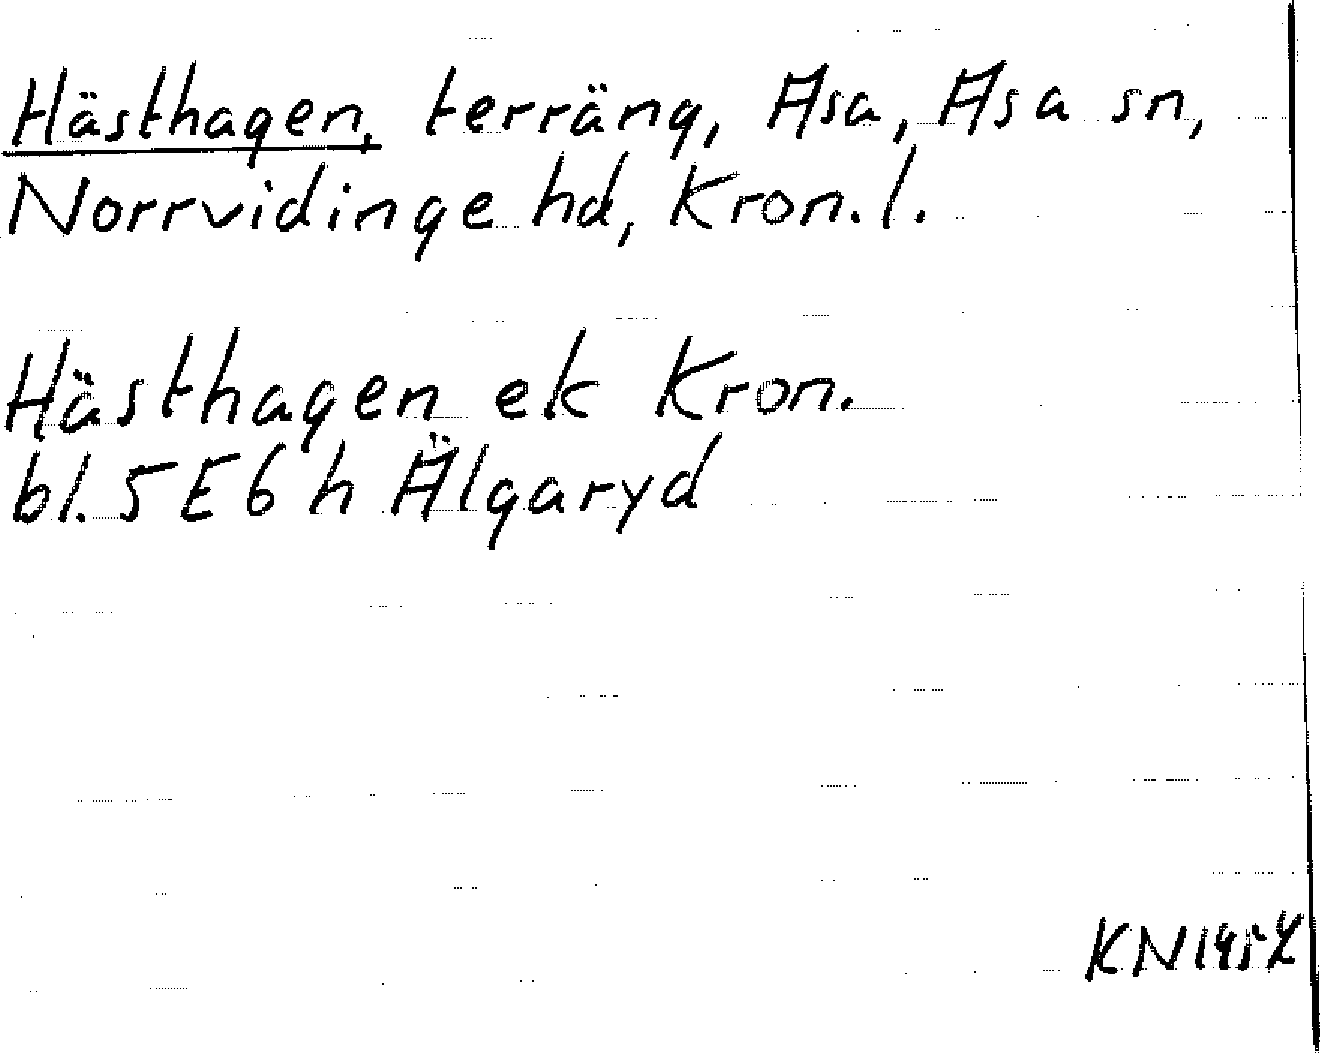 Hästhagen, terräng, Asa, Asa sn,
Norrvidinge hd, Kron.l.
Hästhagen ek Kron.
bl. 5E6h Älgaryd
KN